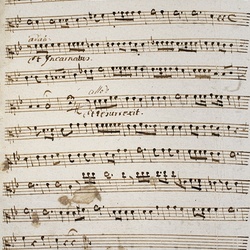 et Incarnatus.
allo
et resurrexit.